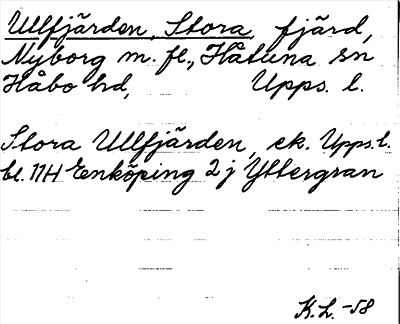 Ullfjärden, Stora, fjärd,
Nyborg m. fl., Håtuna sn
Håbo hd, Upps. l.
Stora Ullfjärden, ek. Upps. l.
bl. 11H Enköping 2 j Yttergran
K. L. -58